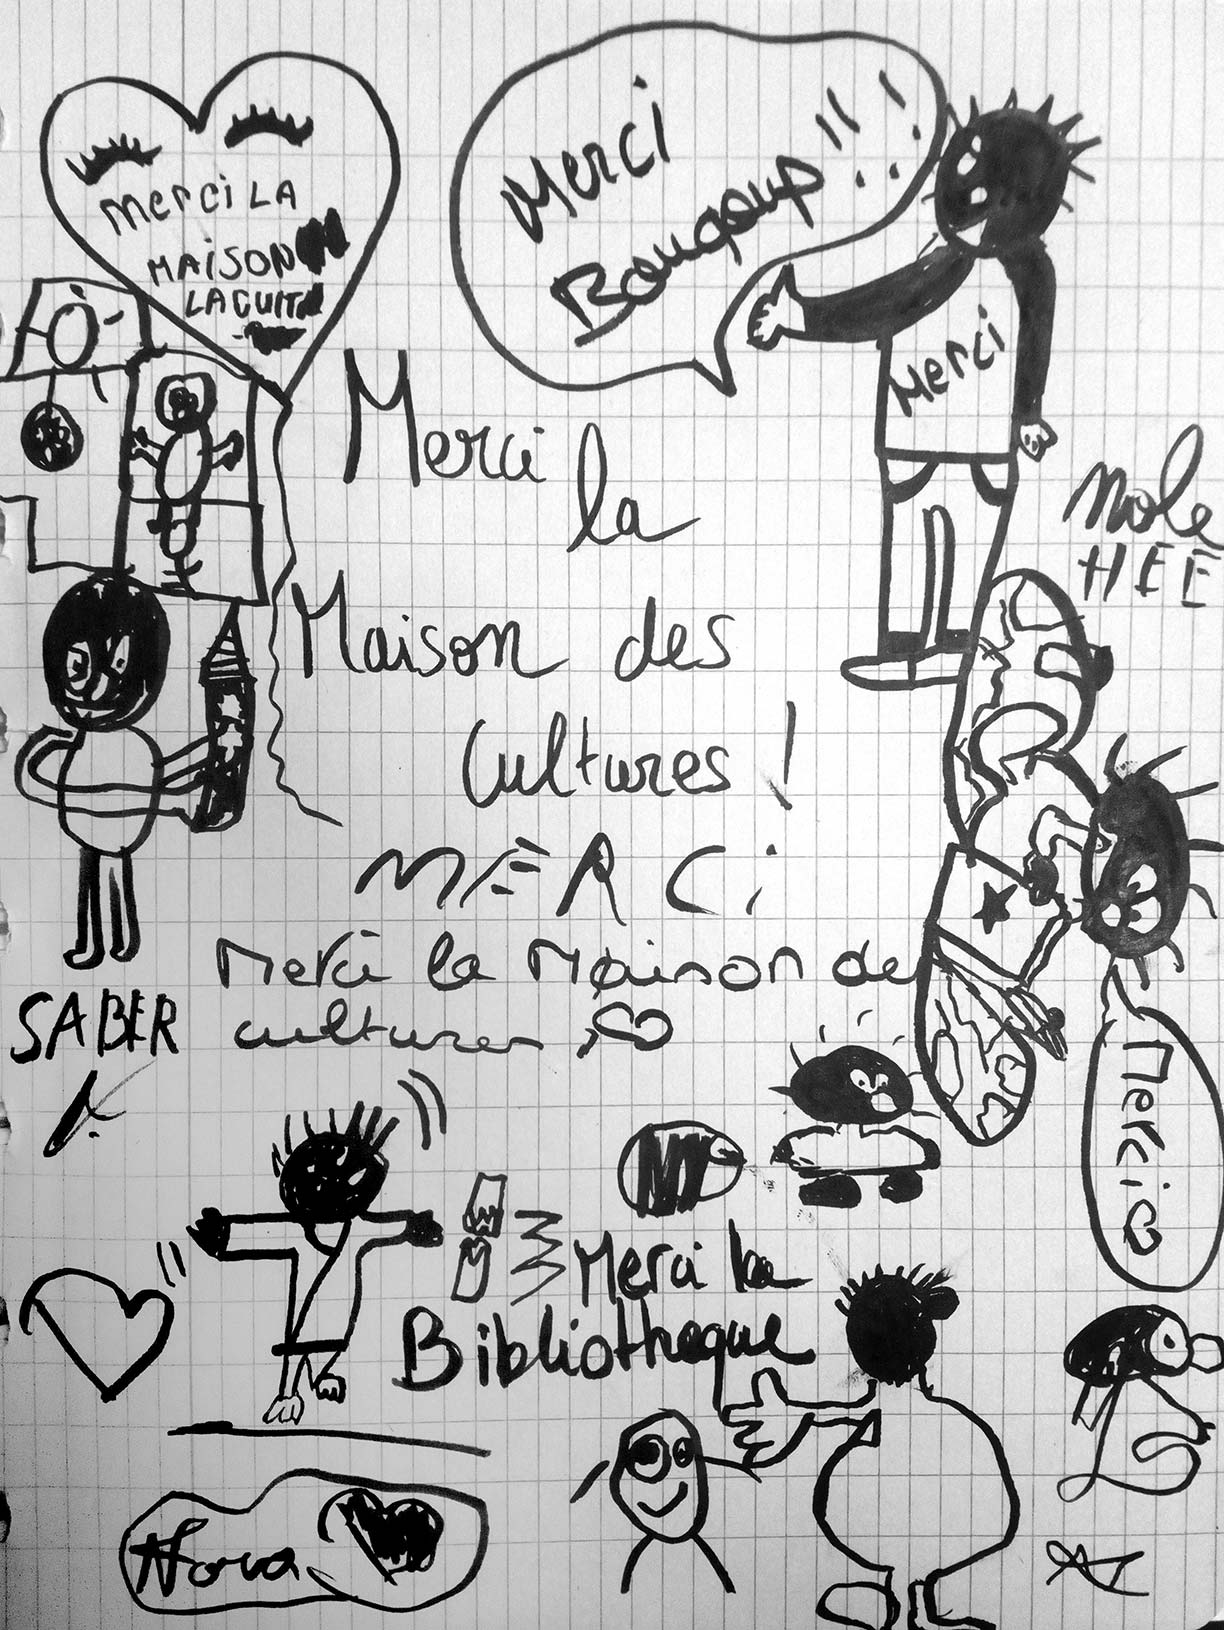 Merci LA
MAISON
LACUIT
Merci
Baucoup!!!
Merci
Merci
la
Maison des
Cultures!
Mole
HEE
MERCi
Merci la Maison de
cultures
SABER
Merci
Merci la
Bibliotheque
Nova